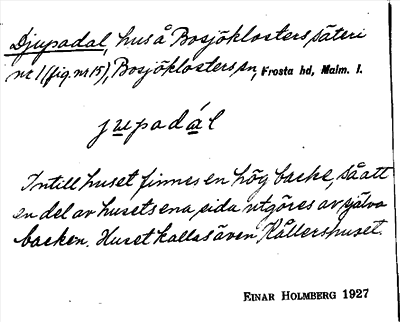 Djupadal, hus å Bosjöklosters säteri
nr 1 (fig. nr 15), Bosjöklosters sn, Frosta hd, Malm. l.
jupadál
Intill huset finnes en hög backe, så att
en del av husets ena sida utgöres av själva
backen. Huset kallas även Kållershuset.
EINAR HOLMBERG 1927